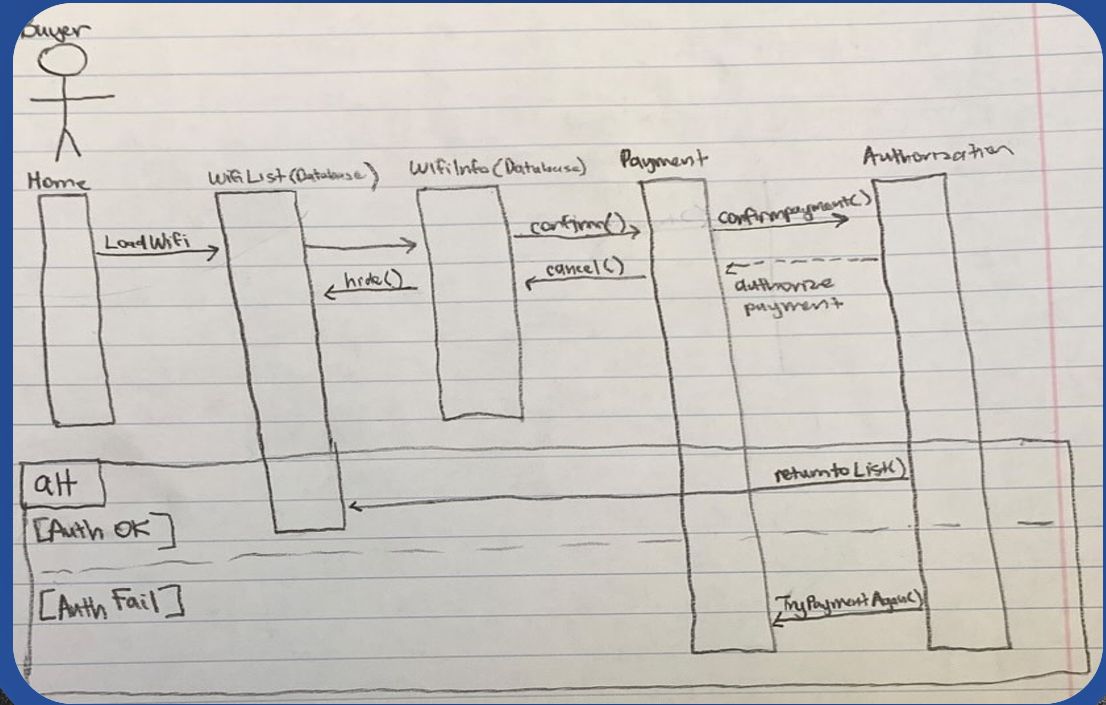 Buyer
Home
WifiList(Database)
WifiInfo(Database)
Payment
Authorization
LoadWifi
confirm()
confirmpayment()
hide()
cancel()
authorize
payment
alt
returntoList()
[Auth OK]
[Auth Fail]
TryPaymentAgain()